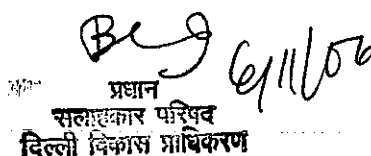 6/11/06
प्रधान
सलाहकार परिषद
दिल्ली विकास प्राधिकरण